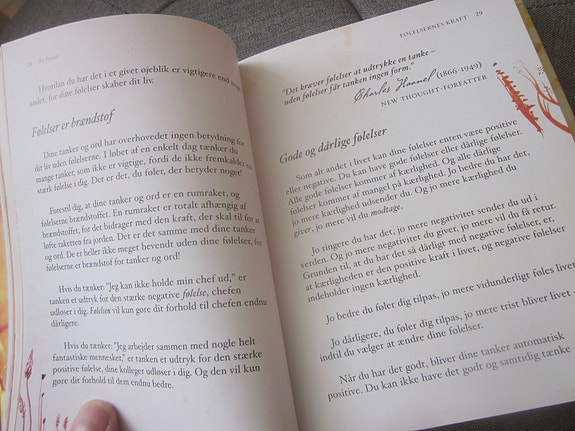 28 the Power
Hvordan du har det i et givet øjeblik er vigtigere end
andet, for dine følelser skaber dit liv.
Følelser er brændstof
Dine tanker og ord har overhovedet ingen betydning for
dit liv uden følelserne. I løbet af en enkelt dag tænker du
mange tanker, som ikke er vigtige, fordi de ikke fremkalder en
stærk følelse i dig. Det er det, du føler, der betyder noget!
Forestil dig, at dine tanker og ord er en rumraket, og
følelserne brændstoffet. En rumraket er totalt afhængig af
brændstoffet, for det bidrager med den kraft, der skal til for at
løfte raketten fra jorden. Det er det samme med dine tanker
og ord. De er heller ikke meget bevendt uden dine følelser, for
følelserne er brændstof for tanker og ord!
Hvis du tænker: "Jeg kan ikke holde min chef ud," er
tanken et udtryk for den stærke negative følelse, chefen
udløser i dig. Følelsen vil kun gøre dit forhold til chefen endnu
dårligere.
Hvis du tænker: "Jeg arbejder sammen med nogle helt
fantastiske mennesker," er tanken et udtryk for den stærke
positive følelse, dine kolleger udløser i dig. Og den vil kun
gøre dit forhold til dem endnu bedre.
FØLELSERNES KRAFT 29
"Det kræver følelser at udtrykke en tanke –
uden følelser får tanken ingen form."
Charles Haanel (1866-1949)
NEW THOUGHT-FORFATTER
Gode og dårlige følelser
Som alt andet i livet kan dine følelser enten være positive
eller negative. Du kan have gode følelser eller dårlige følelser.
Alle gode følelser kommer af kærlighed. Og alle dårlige
følelser kommer af mangel på kærlighed. Jo bedre du har det,
jo mere kærlighed udsender du. Og jo mere kærlighed du
giver, jo mere vil du modtage.
Jo ringere du har det, jo mere negativitet sender du ud i
verden. Og jo mere negativitet du giver, jo mere vil du få retur.
Grunden til, at du har det så dårligt med negative følelser, er,
at kærligheden er den positive kraft i livet, og negative følelser
indeholder ingen kærlighed.
Jo bedre du føler dig tilpas, jo mere vidunderligt føles livet
Jo dårligere, du føler dig tilpas, jo mere trist bliver livet
indtil du vælger at ændre dine følelser.
Når du har det godt, bliver dine tanker automatisk
positive. Du kan ikke have det godt og samtidig tænke